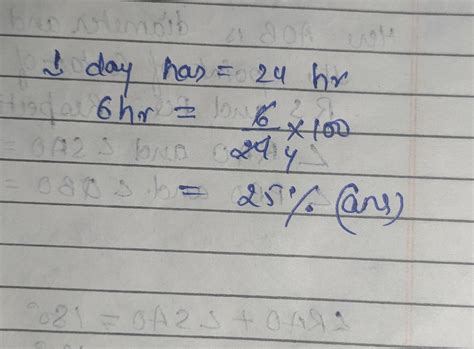 1 day has = 24 hr
6hr = 6/24 4 × 100
= 25% (ans)